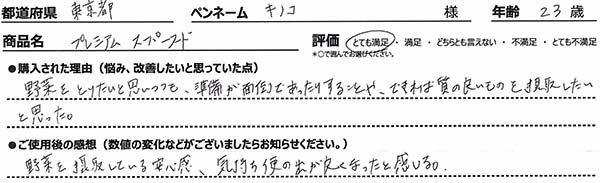 都道府県 東京都 ペンネーム キノコ 様 年齢 23 歳
商品名 プレミアム スーパーフード 評価 とても満足・満足・どちらとも言えない・不満足・とても不満足
*○で囲んでお選びください。
●購入された理由（悩み、改善したいと思っていた点）
野菜をとりたいと思いつつも、準備が面倒であったりすることや、できれば質の良いものを摂取したい
と思った。
●ご使用後の感想（数値の変化などがございましたらお知らせください。）
野菜を摂取している安心感、気持ち便の出が良くなったと感じる。